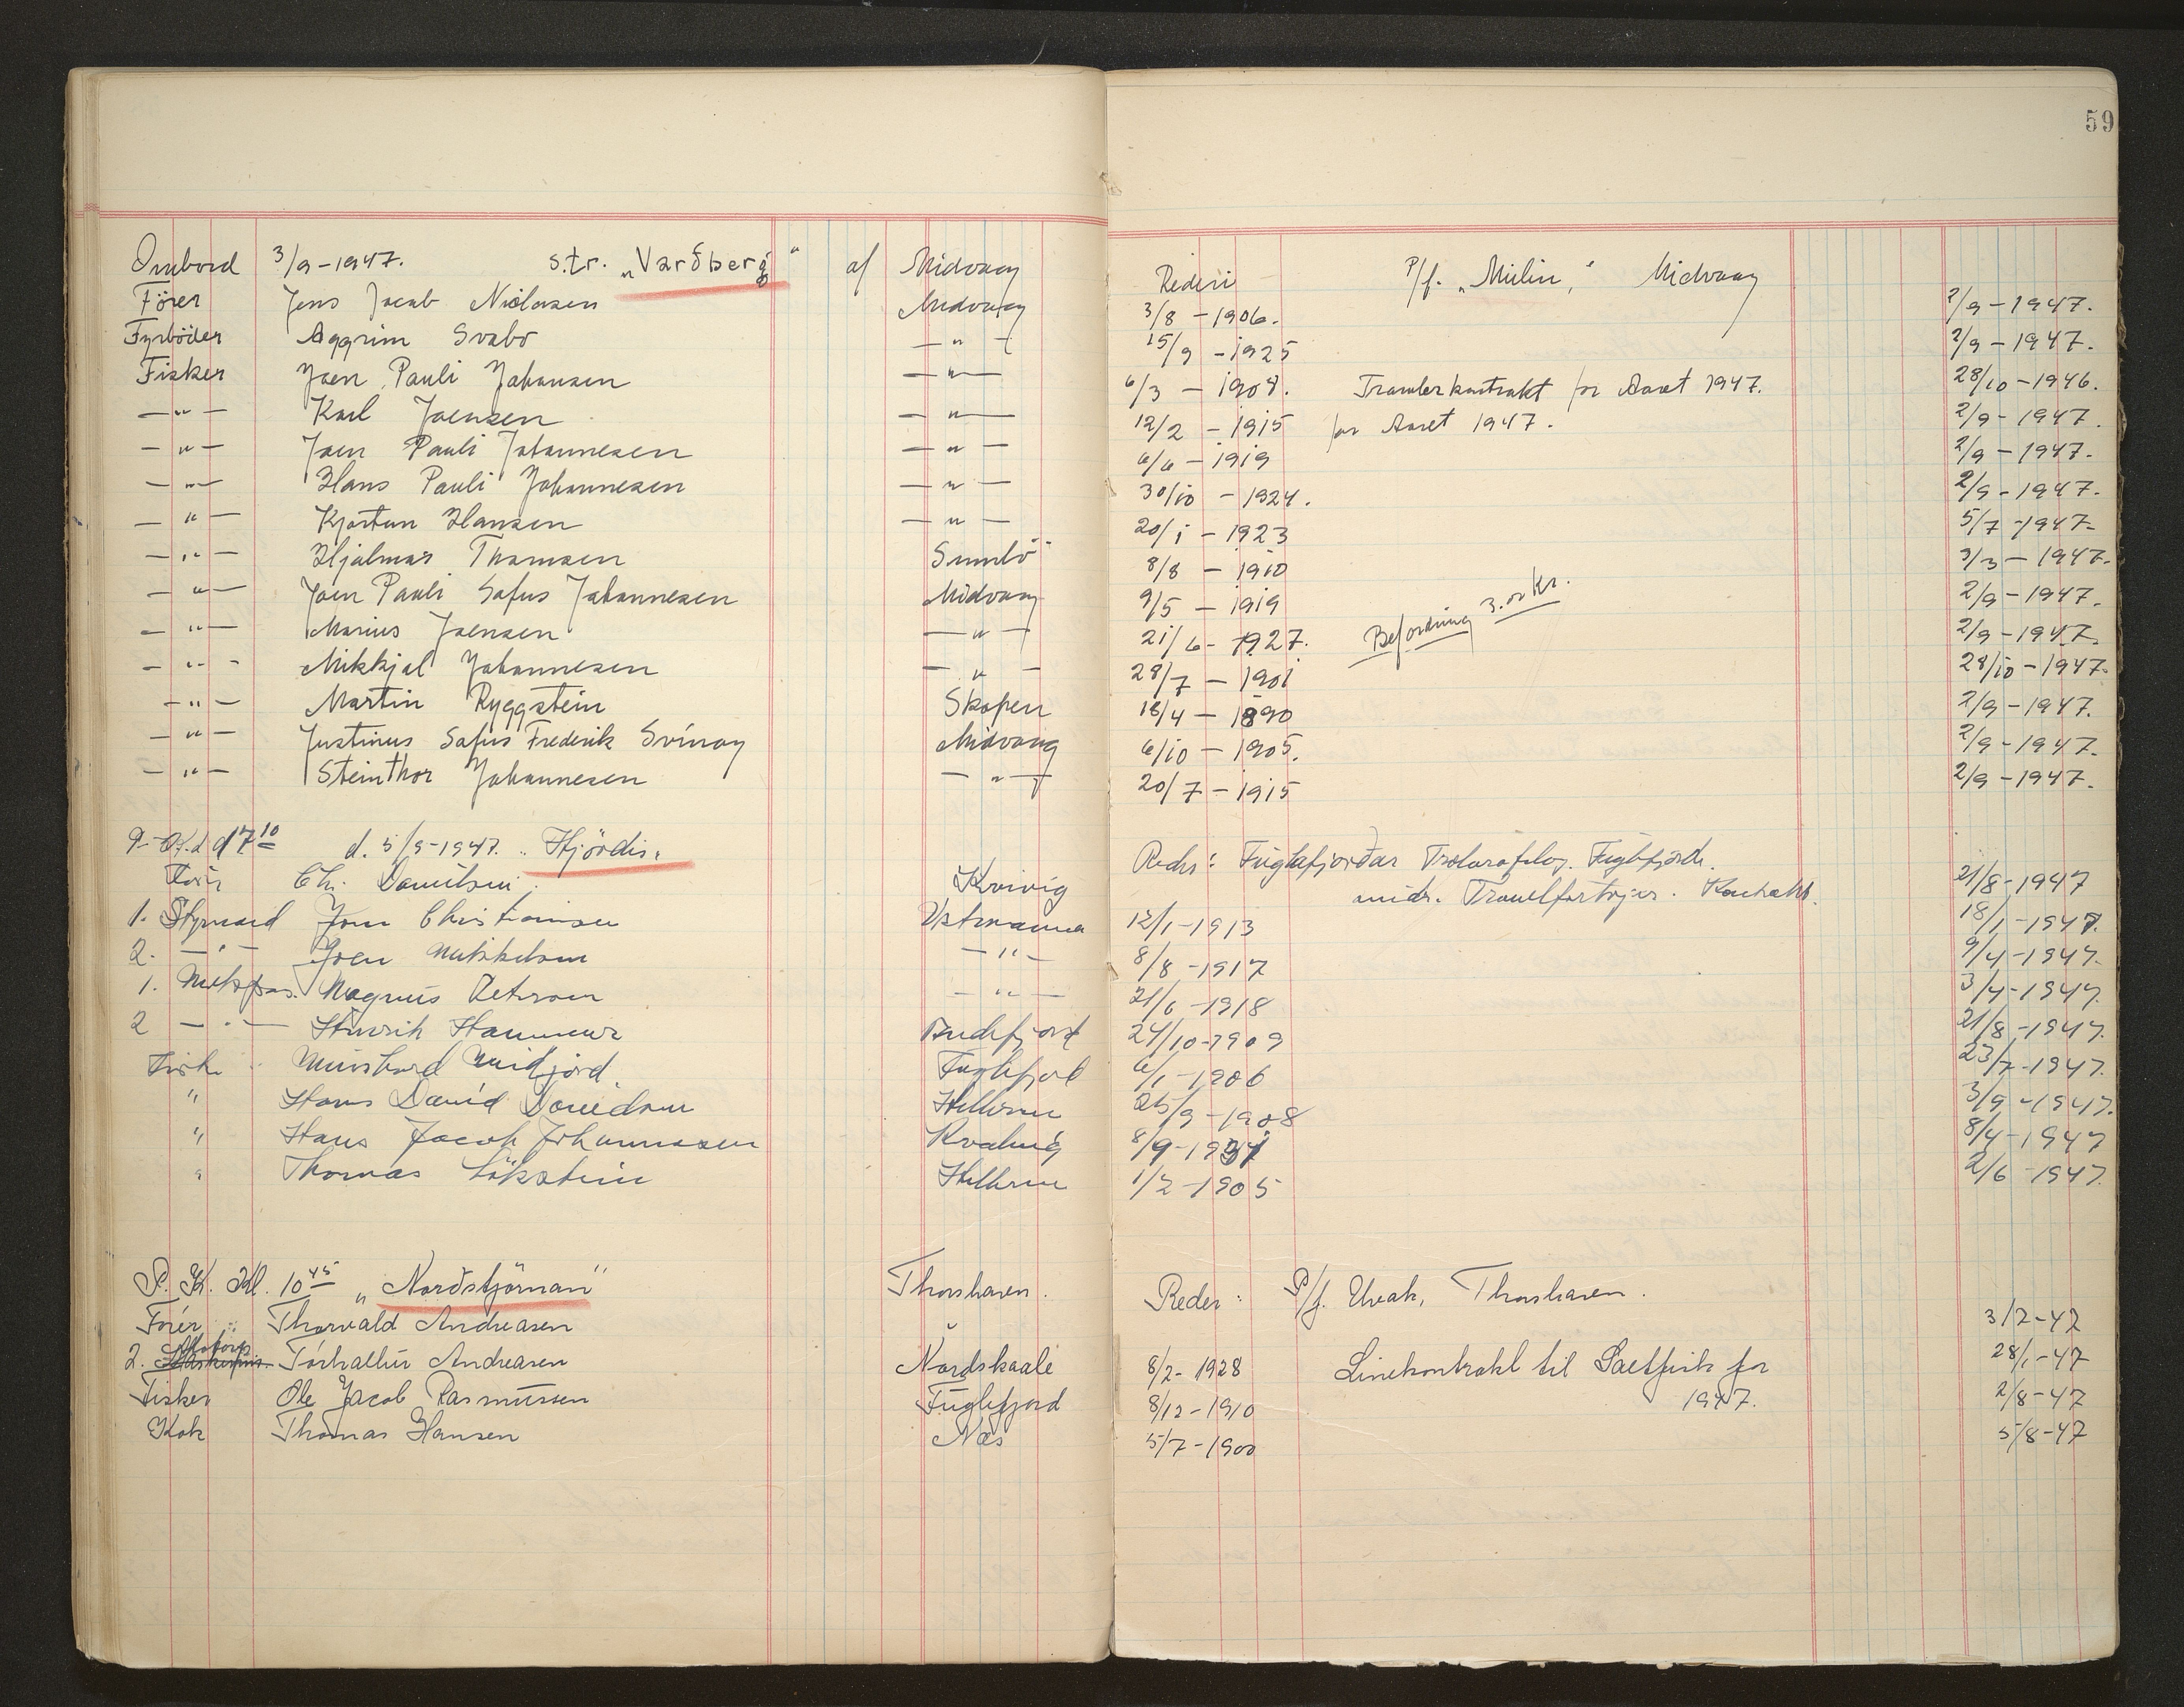 59
Ombord 3/9-1947. s.tr. „Varðberg“ af Midvaag Rederi P/f. „Miilin,“ Midvaag
Förer Jens Jacob Niclasen Midvaag 3/8 - 1906. 2/9-1947.
Fyrböder Aggrim Svabo - " - 15/9 - 1925 2/9-1947.
Fisker Joen Pauli Johansen - " - 6/3 - 1904. Trawlerkontrakt for Aaret 1947. 28/10-1946.
- " - Karl Joensen - " - 12/2 - 1915 for Aaret 1947. 2/9-1947.
- " - Joen Pauli Johannesen - " - 6/6 - 1919 2/9-1947.
- " - Hans Pauli Johannesen - " - 30/10 - 1924. 2/9-1947.
- " - Kjartan Hansen - " - 20/1 - 1923 5/7-1947-
- " - Hjalmar Thomsen Sumbö 8/8 - 1910 3/3-1947.
- " - Joen Pauli Sofus Johannesen Midvaag 9/5 - 1919 2/9-1947.
- " - Marius Joensen - " - 21/6 - 1927. Befordring 3.00 Kr. 2/9-1947.
- " - Mikkjal Johannesen - " - 28/7 - 1901 28/10-1947.
- " - Martin Ryggstein Skopen 18/4 - 1890 2/9-1947.
- " - Justinus Sofus Frederik Svínoy Midvaag 6/10 - 1905. 2/9-1947.
- " - Steinthor Johannesen - " - 20/7 - 1915 2/9-1947.
d. 5/9-1947. „Hjördis“ Reder: Fuglafjorðar Fuglefjord.
Chr. Danielsen Kvivig Kontrakt. 21/8-1947
1. Styrmand Jens Christiansen Vestmanna 12/1-1913 18/1-1947.
2. - " - Joen Mikkelsen - " - 8/8-1917 9/4-1947.
1. Magnus Petersen - " - 21/6-1918 3/4-1947.
2 - " - Hinrik Hammer Andefjord 24/10-1909 21/8-1947.
Midjord Fuglefjord 6/1-1906 23/7-1947.
" Hans David Danielsen Hellerne 25/9-1908 3/9-1947.
" Hans Jacob Johannesen Kvalvig 8/9-1931 8/4-1947
" Thomas Lökstein Hellerne 1/2-1905 2/6-1947.
P. K. Kl. 10 45 „Nordstjörnan“ Thorshavn. Reder: P/f. Thorshavn.
Förer Thorvald Andreasen " 3/2-47
2. Motorp. Tórhallur Andreasen Nordskaale 8/2-1928 Linekontrakt til Saltfisk for 28/1-47
Fisker Ole Jacob Rasmussen Fuglefjord 8/12-1910 1947. 2/8-47
Kok Thomas Hansen Næs 5/7-1900 5/8-47